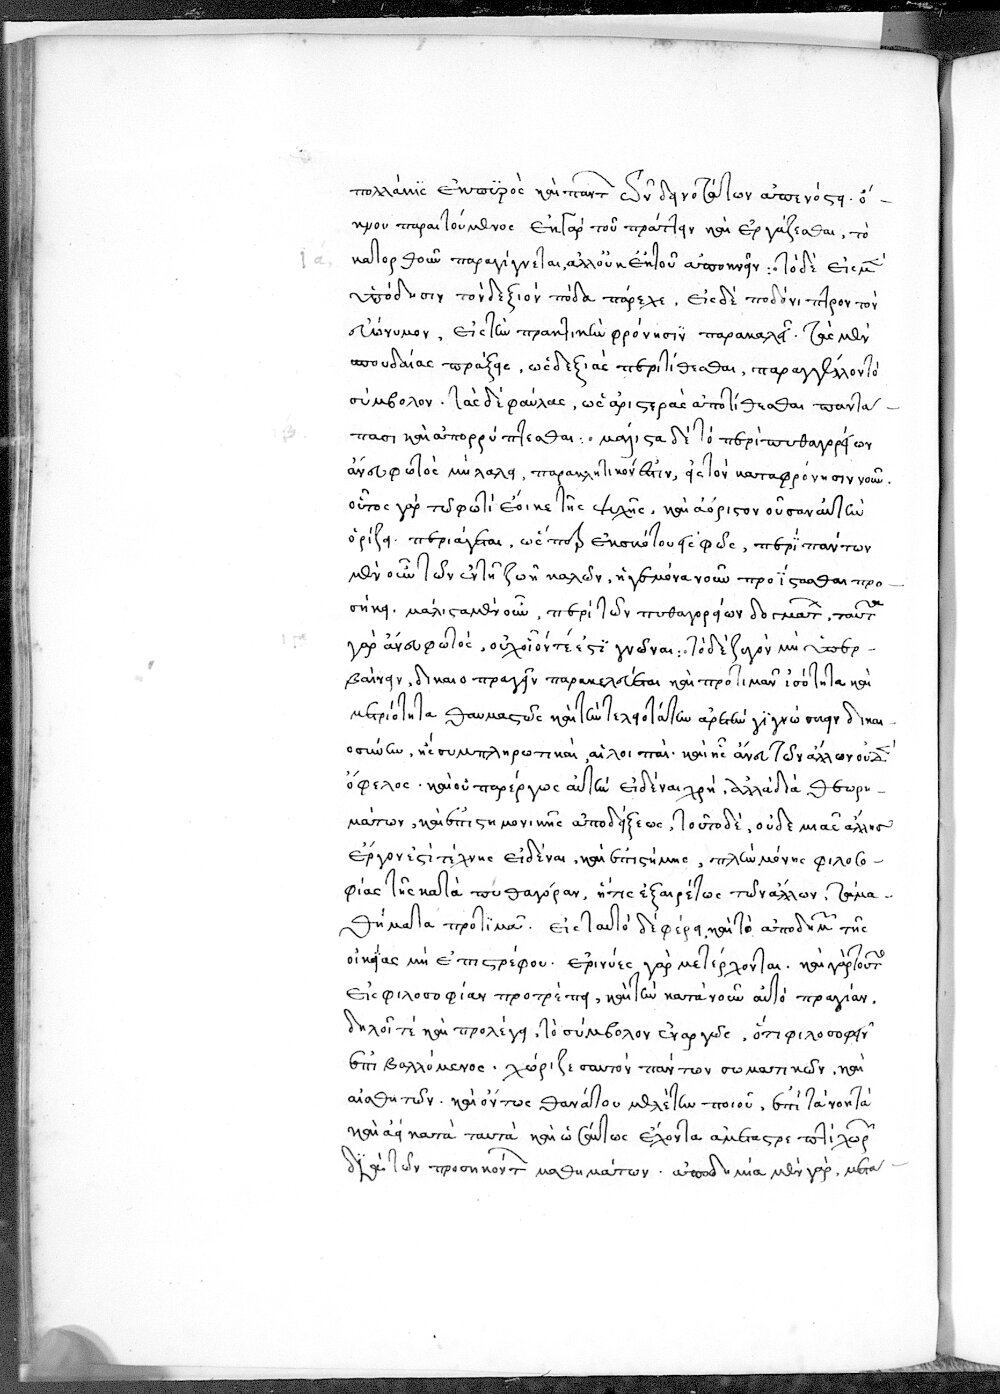 πολλάκις ἐκ πυρὸς καὶ παντ δεινοτάτων ἀπενόσει. ὁ
κημου παραιτούμενος ἐκ γὰρ τοῦ πράττειν καὶ ἐργάζεσθαι, τὸ
κατορθοῦν παραγίγνεται, ἀλλ' οὐκ ἐκ τοῦ ἀποκνεῖν: τὸ δὲ εἰς μὲν
ὑπόδησιν τὸν δεξιὸν πόδα πάρεχε, εἰς δὲ ποδόνιπτρον τὸν
εὐώνυμον, εἰς τὴν πρακτικὴν φρόνησιν παρακαλεῖ. τὰς μὲν
σπουδαίας πράξεις, ὡς δεξιὰς περιτίθεσθαι, παραγγέλλον τὸ
σύμβολον. τὰς δὲ φαύλας, ὡς ἀριστερὰς ἀποτίθεσθαι παντά
πασι καὶ ἀπορρύπτεσθαι: μάλιστα δὲ τὸ περὶ πυθαγορείων
ἄνευ φωτὸς μὴ λάλει, παρακλητικόν ἐστιν, εἰς τὸν κατὰ φρόνησιν νοῦν.
οὗτος γὰρ τῷ φωτὶ ἔοικε τῆς ψυχῆς, καὶ ἀόριστον οὖσαν αὐτὴν
ὁρίζει. περιάγεται, ὡς περ ἐκ σκότους εἰς φῶς, περὶ πάντων
μὲν οὖν τῶν ἐν τῇ ζωῇ καλῶν, ἡγεμόνα νοῦν προΐστασθαι προ
σήκει. μάλιστα μὲν οὖν, περὶ τῶν πυθαγορείων δογμάτ, ταῦτα
γὰρ ἄνευ φωτὸς, οὐχ οἷόν τέ ἐστι γνῶναι: τὸ δὲ ζυγὸν μὴ ὑπερ
βαίνειν, δικαιοπραγεῖν παρακελεύεται καὶ προτιμᾶν ἰσότητα καὶ
μετριότητα θαυμαστῶς καὶ τὴν τελειοτάτην ἀρετὴν γιγνώσκειν δικαι
οσύνην, ἧς συμπληρωτικαὶ, αἱ λοιπαί. καὶ ἧς ἄνευ τῶν ἄλλων οὐδὲν
ὄφελος. καὶ οὐ παρέργως αὐτὴν εἰδέναι χρή, ἀλλὰ διὰ θεωρη
μάτων, καὶ ἐπιστημονικῆς ἀποδείξεως, τοῦτο δὲ, οὐδεμιᾶς ἄλλης
ἔργον ἐστὶ τέχνης εἰδέναι, καὶ ἐπιστήμης, πλὴν μόνης φιλοσο
φίας τῆς κατὰ πυθαγόραν, ἥτις ἐξαιρέτως τῶν ἄλλων, τὰ μα
θήματα προτιμᾷ. εἰς ταυτὸ δὲ φέρει καὶ τὸ ἀποδημῶν τῆς
οἰκείας μὴ ἐπιστρέφου. ἐρινύες γὰρ μετέρχονται. καὶ γὰρ τοῦτο
εἰς φιλοσοφίαν προτρέπει, καὶ τὴν κατὰ νοῦν αὐτὸ πραγίαν.
δηλοῖ τέ καὶ προλέγει, τὸ σύμβολον ἐναργῶς, ὅτι φιλοσοφεῖν
ἐπιβαλλόμενος. χώριζε σαυτὸν πάντων σωματικῶν, καὶ
αἰσθητῶν. καὶ ὄντως θανάτου μελέτην ποιοῦ, ἐπὶ τὰ νοητὰ
καὶ ἀεὶ κατὰ ταυτὰ καὶ ὡσαύτως ἔχοντα ἀμεταστρεπτὶ χωρῶν
διὰ τῶν προσηκόντ μαθημάτων. ἀποδημία μὲν γὰρ, μετα